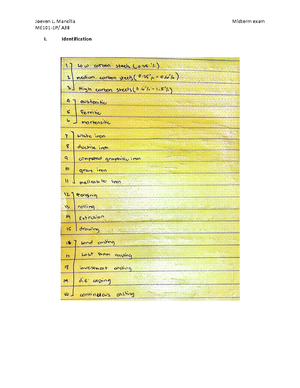 Joeven L. Mancilla Midterm exam
ME101-LP/ A38
I. Identification
1 Low carbon steels
2 medium carbon steels
3 High carbon steels
4 austenitic
5 Ferritic
6 martensitic
7 white iron
8 ductile iron
9 compacted graphite iron
10 gray iron
11 malleable iron
12 Forging
13 rolling
14 extrusion
15 drawing
16 sand casting
17 Lost foam casting
investment casting
die casting
continuous casting